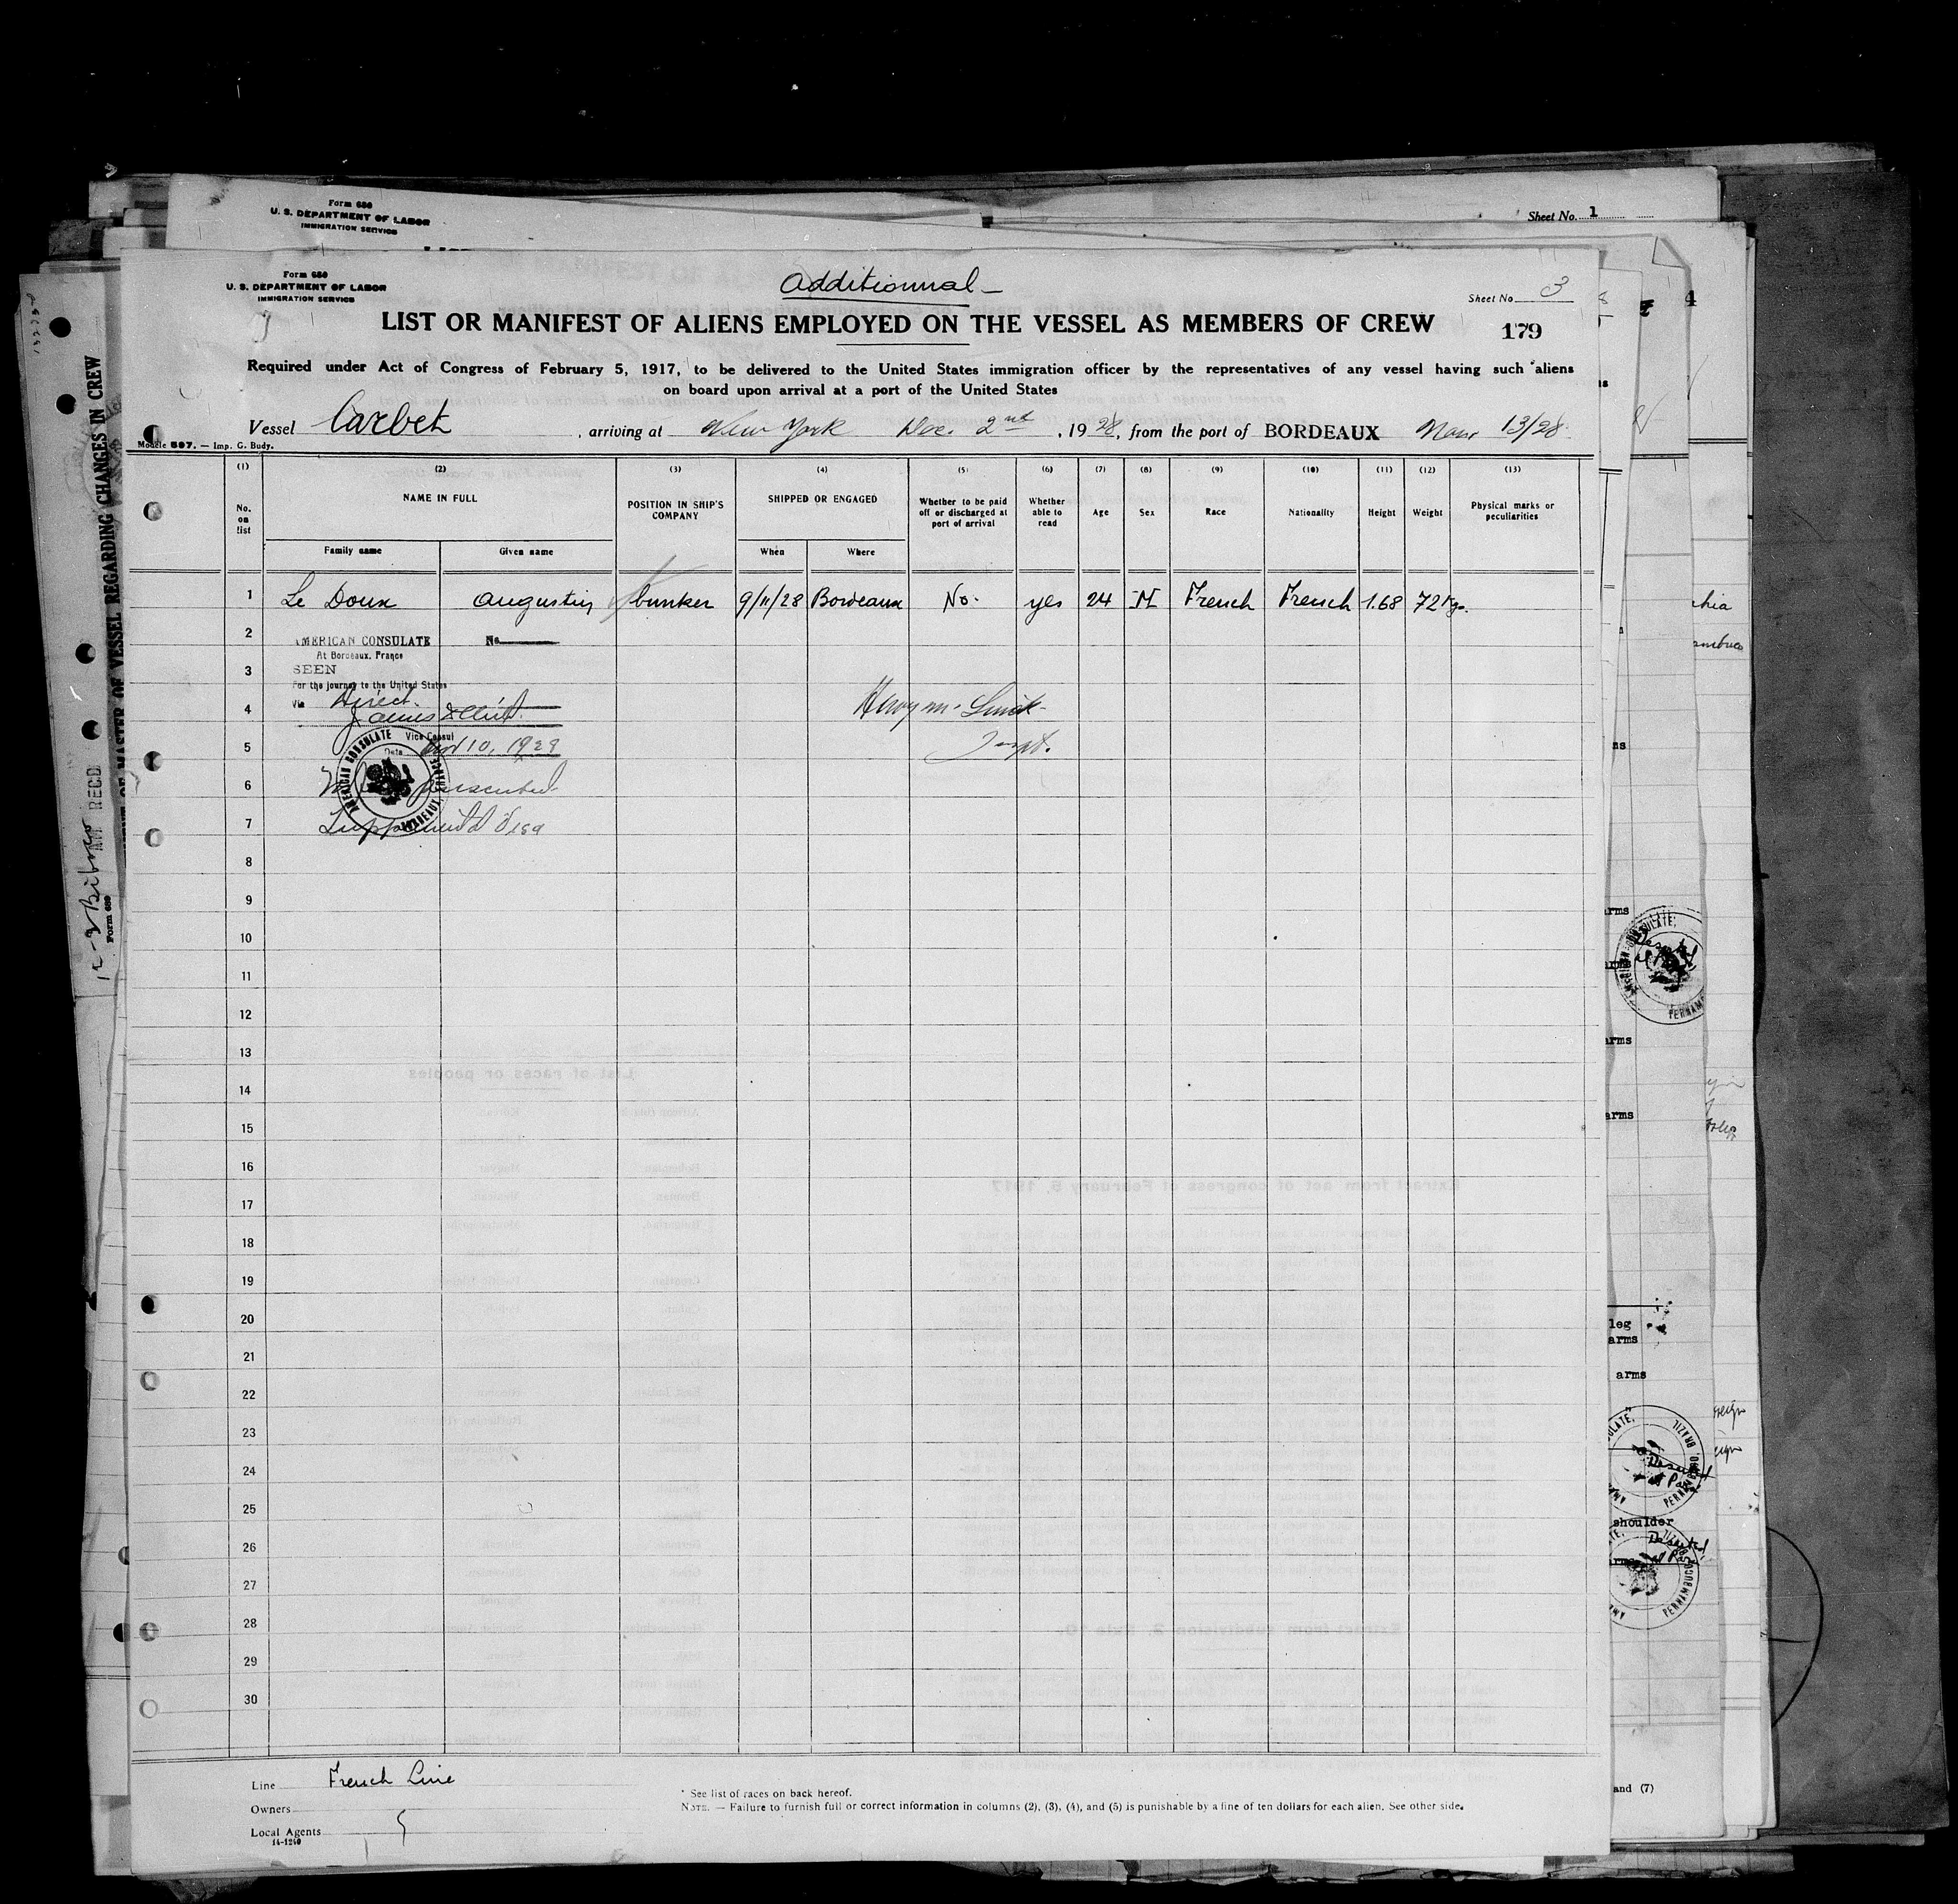 Form 680
U. S. DEPARTMENT OF LABOR
IMMIGRATION SERVICE
Sheet No. 1
4
Form 680
U. S. DEPARTMENT OF LABOR
IMMIGRATION SERVICE
Additionnal
Sheet No 3
LIST OR MANIFEST OF ALIENS EMPLOYED ON THE VESSEL AS MEMBERS OF CREW
179
Required under Act of Congress of February 5, 1917, to be delivered to the United States immigration officer by the representatives of any vessel having such aliens
on board upon arrival at a port of the United States
Vessel Carbet, arriving at New York Dec. 2nd, 1928, from the port of BORDEAUX Nov 13/28
Modèle 597. — Imp. G. Budy.
(1) (2) (3) (4) (5) (6) (7) (8) (9) (10) (11) (12) (13)
No. on list
NAME IN FULL
Family name
Given name
POSITION IN SHIP'S COMPANY
SHIPPED OR ENGAGED
When
Where
Whether to be paid off or discharged at port of arrival
Whether able to read
Age
Sex
Race
Nationality
Height
Weight
Physical marks or peculiarities
1 Le Doux Augustin bunker 9/11/28 Bordeaux No. yes 24 M French French 1.68 72 Kgs.
2
AMERICAN CONSULATE No
At Bordeaux, France
3
SEEN
For the journey to the United States
4
Via Direct.
Vice Consul
5
Date Nov 10, 1928
AMERICAN CONSULATE BORDEAUX, FRANCE
6
7
8
9
10
11
12
13
14
15
16
17
18
19
20
21
22
23
24
25
26
27
28
29
30
Line French Line
Owners
Local Agents
14-1240
* See list of races on back hereof.
NOTE. — Failure to furnish full or correct information in columns (2), (3), (4), and (5) is punishable by a fine of ten dollars for each alien. See other side.
OF MASTER OF VESSEL REGARDING CHANGES IN CREW
RECD
Form 689
arms
arms
arms
leg
arms
arms
shoulder
PERNAMBUCO, BRAZIL
and (7)